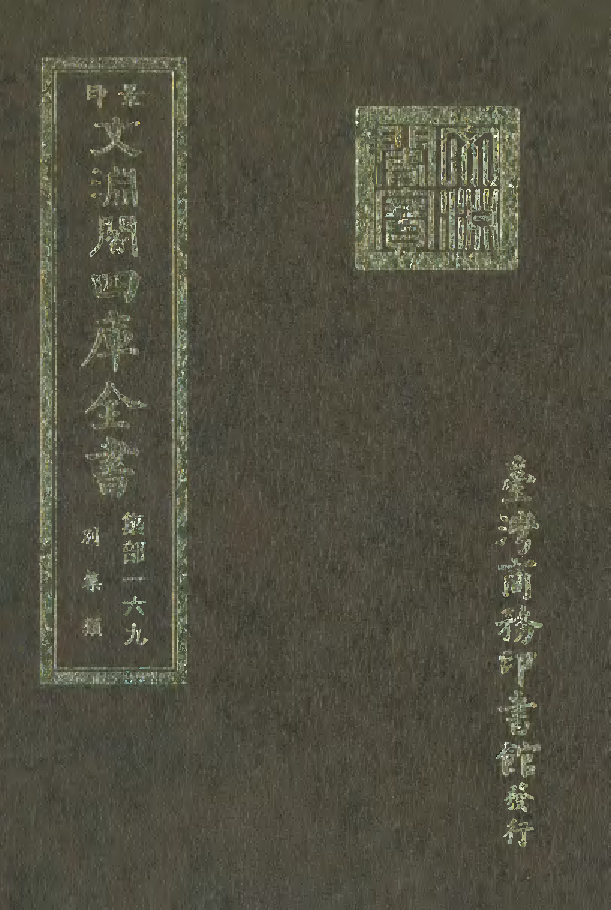 景印
文淵閣四庫全書
集部一六九
別集類
文淵閣寶
臺灣商務印書館發行